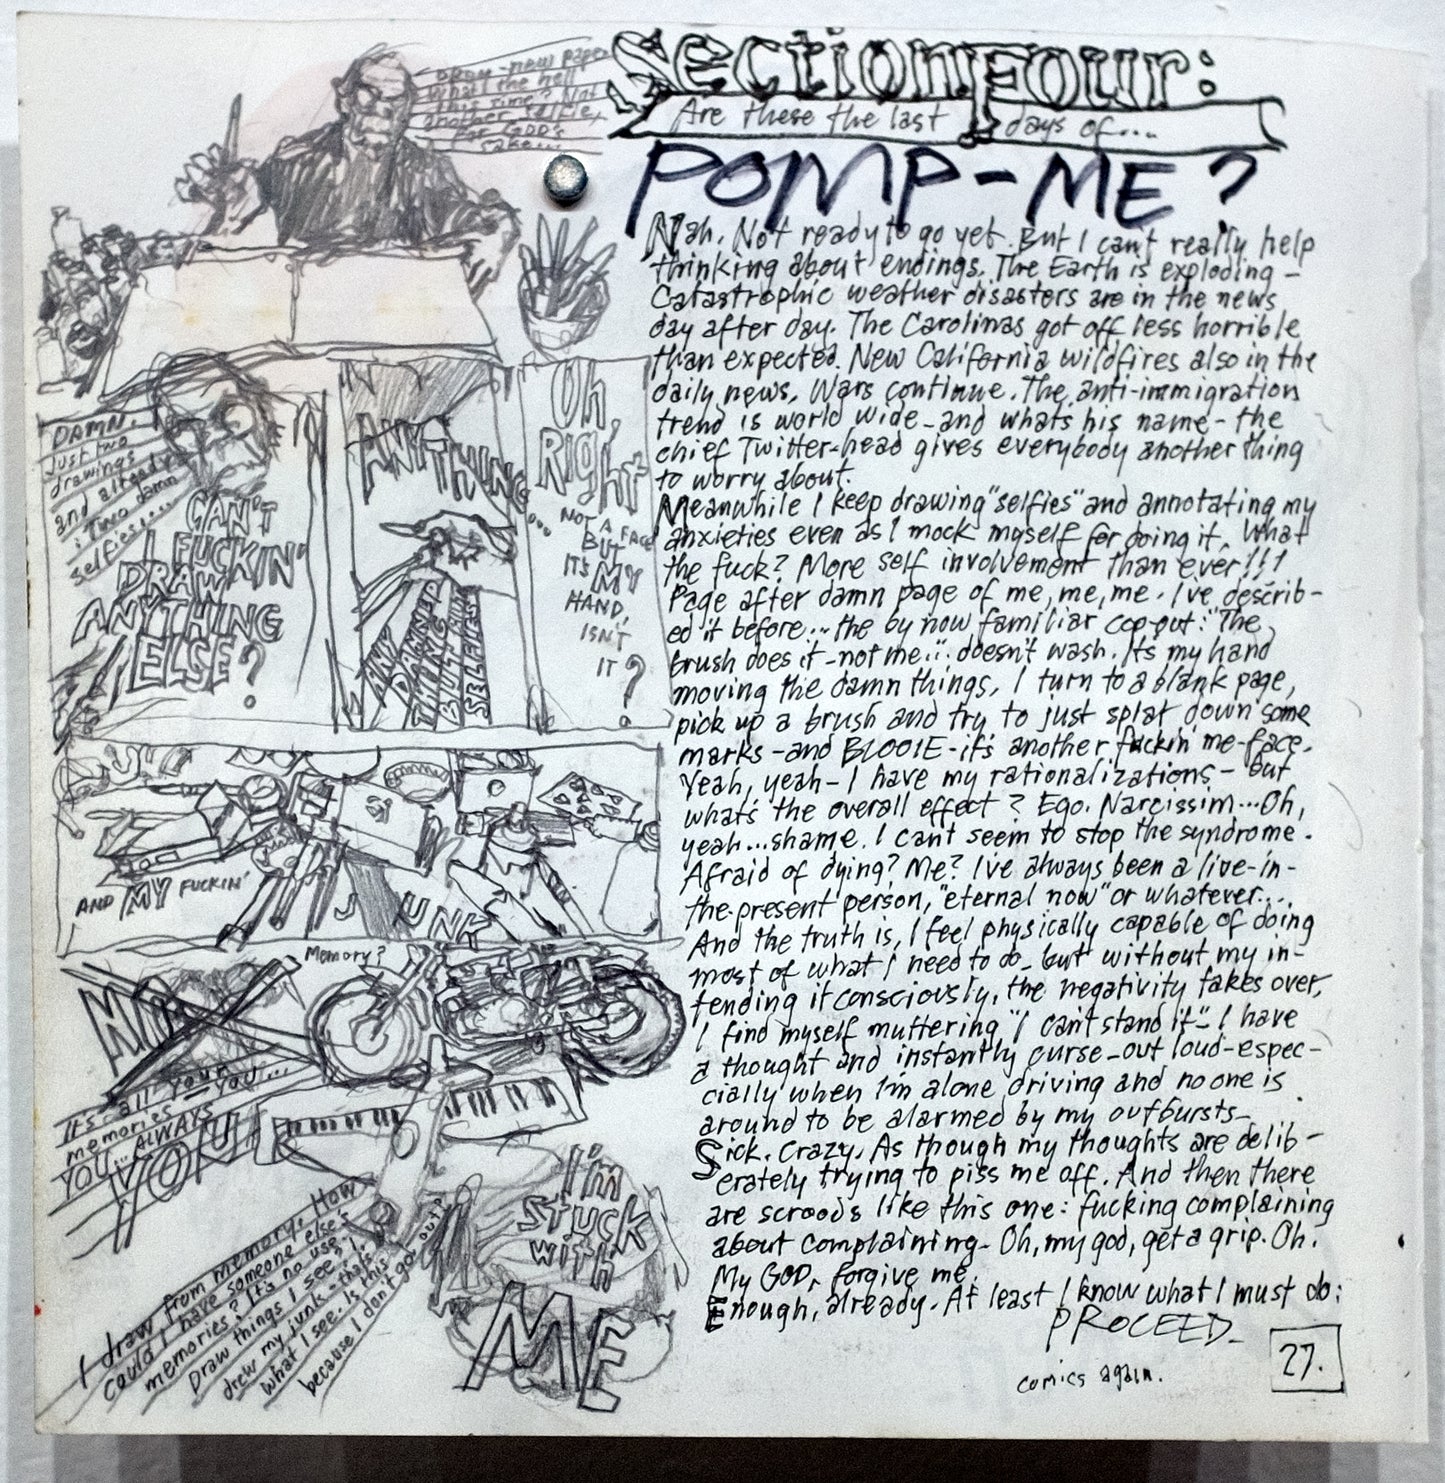 Section Four:
Are these the last days of...
POMP-ME?
Nah. Not ready to go yet. But I can't really help
thinking about endings. The Earth is exploding -
Catastrophic weather disasters are in the news
day after day. The Carolinas got off less horrible
than expected. New California wildfires also in the
daily news. Wars continue. The anti-immigration
trend is world wide - and whats his name - the
chief Twitter-head gives everybody another thing
to worry about.
Meanwhile I keep drawing "selfies" and annotating my
anxieties even as I mock myself for doing it. What
the fuck? More self involvement than ever!!!
Page after damn page of me, me, me. I've describ-
ed it before... the by now familiar cop-out: "The
brush does it - not me..." doesn't wash. Its my hand
moving the damn things. I turn to a blank page,
pick up a brush and try to just splat down some
marks - and BLOOIE - it's another fuckin' me-face.
Yeah, yeah - I have my rationalizations - but
what's the overall effect? Ego. Narcissim... Oh,
yeah... shame. I can't seem to stop the syndrome.
Afraid of dying? Me? I've always been a live-in-
the-present person, "eternal now" or whatever....
And the truth is, I feel physically capable of doing
most of what I need to do - but without my in-
tending it consciously, the negativity takes over,
I find myself muttering "I can't stand it" - I have
a thought and instantly curse - out loud - espec-
cially when I'm alone driving and no one is
around to be alarmed by my outbursts -
Sick. Crazy. As though my thoughts are delib-
erately trying to piss me off. And then there
are screeds like this one: fucking complaining
about complaining - Oh, my god, get a grip. Oh.
My GOD, forgive me.
Enough, already. At least I know what I must do:
PROCEED -
comics again.
27.
Okay - new paper
What the hell
this time? Not
another selfie,
For GOD's
sake...
DAMN.
Just two
drawings
and already
: Two damn
selfies....
CAN'T
I FUCKIN'
DRAW
ANYTHING
ELSE?
ANYTHING...
ANY
DAMNED
THING
BUT
SELFIES
Oh,
Right
NOT A FACE
BUT
IT'S MY
HAND,
ISN'T
IT?
JUST
AND MY FUCKIN'
JUNK
NO
Memory?
It's all your
memories - you...
YOU... ALWAYS
YOUR
I draw from memory. How
could I have someone else's
memories? It's no use. I
Draw things I see? I
drew my junk - that's
what I see. Is this
because I don't go out?
I'm
Stuck
with
ME